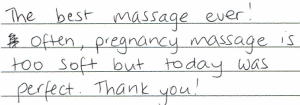 The best massage ever!
Often, pregnancy massage is
too soft but today was
perfect. Thank you!